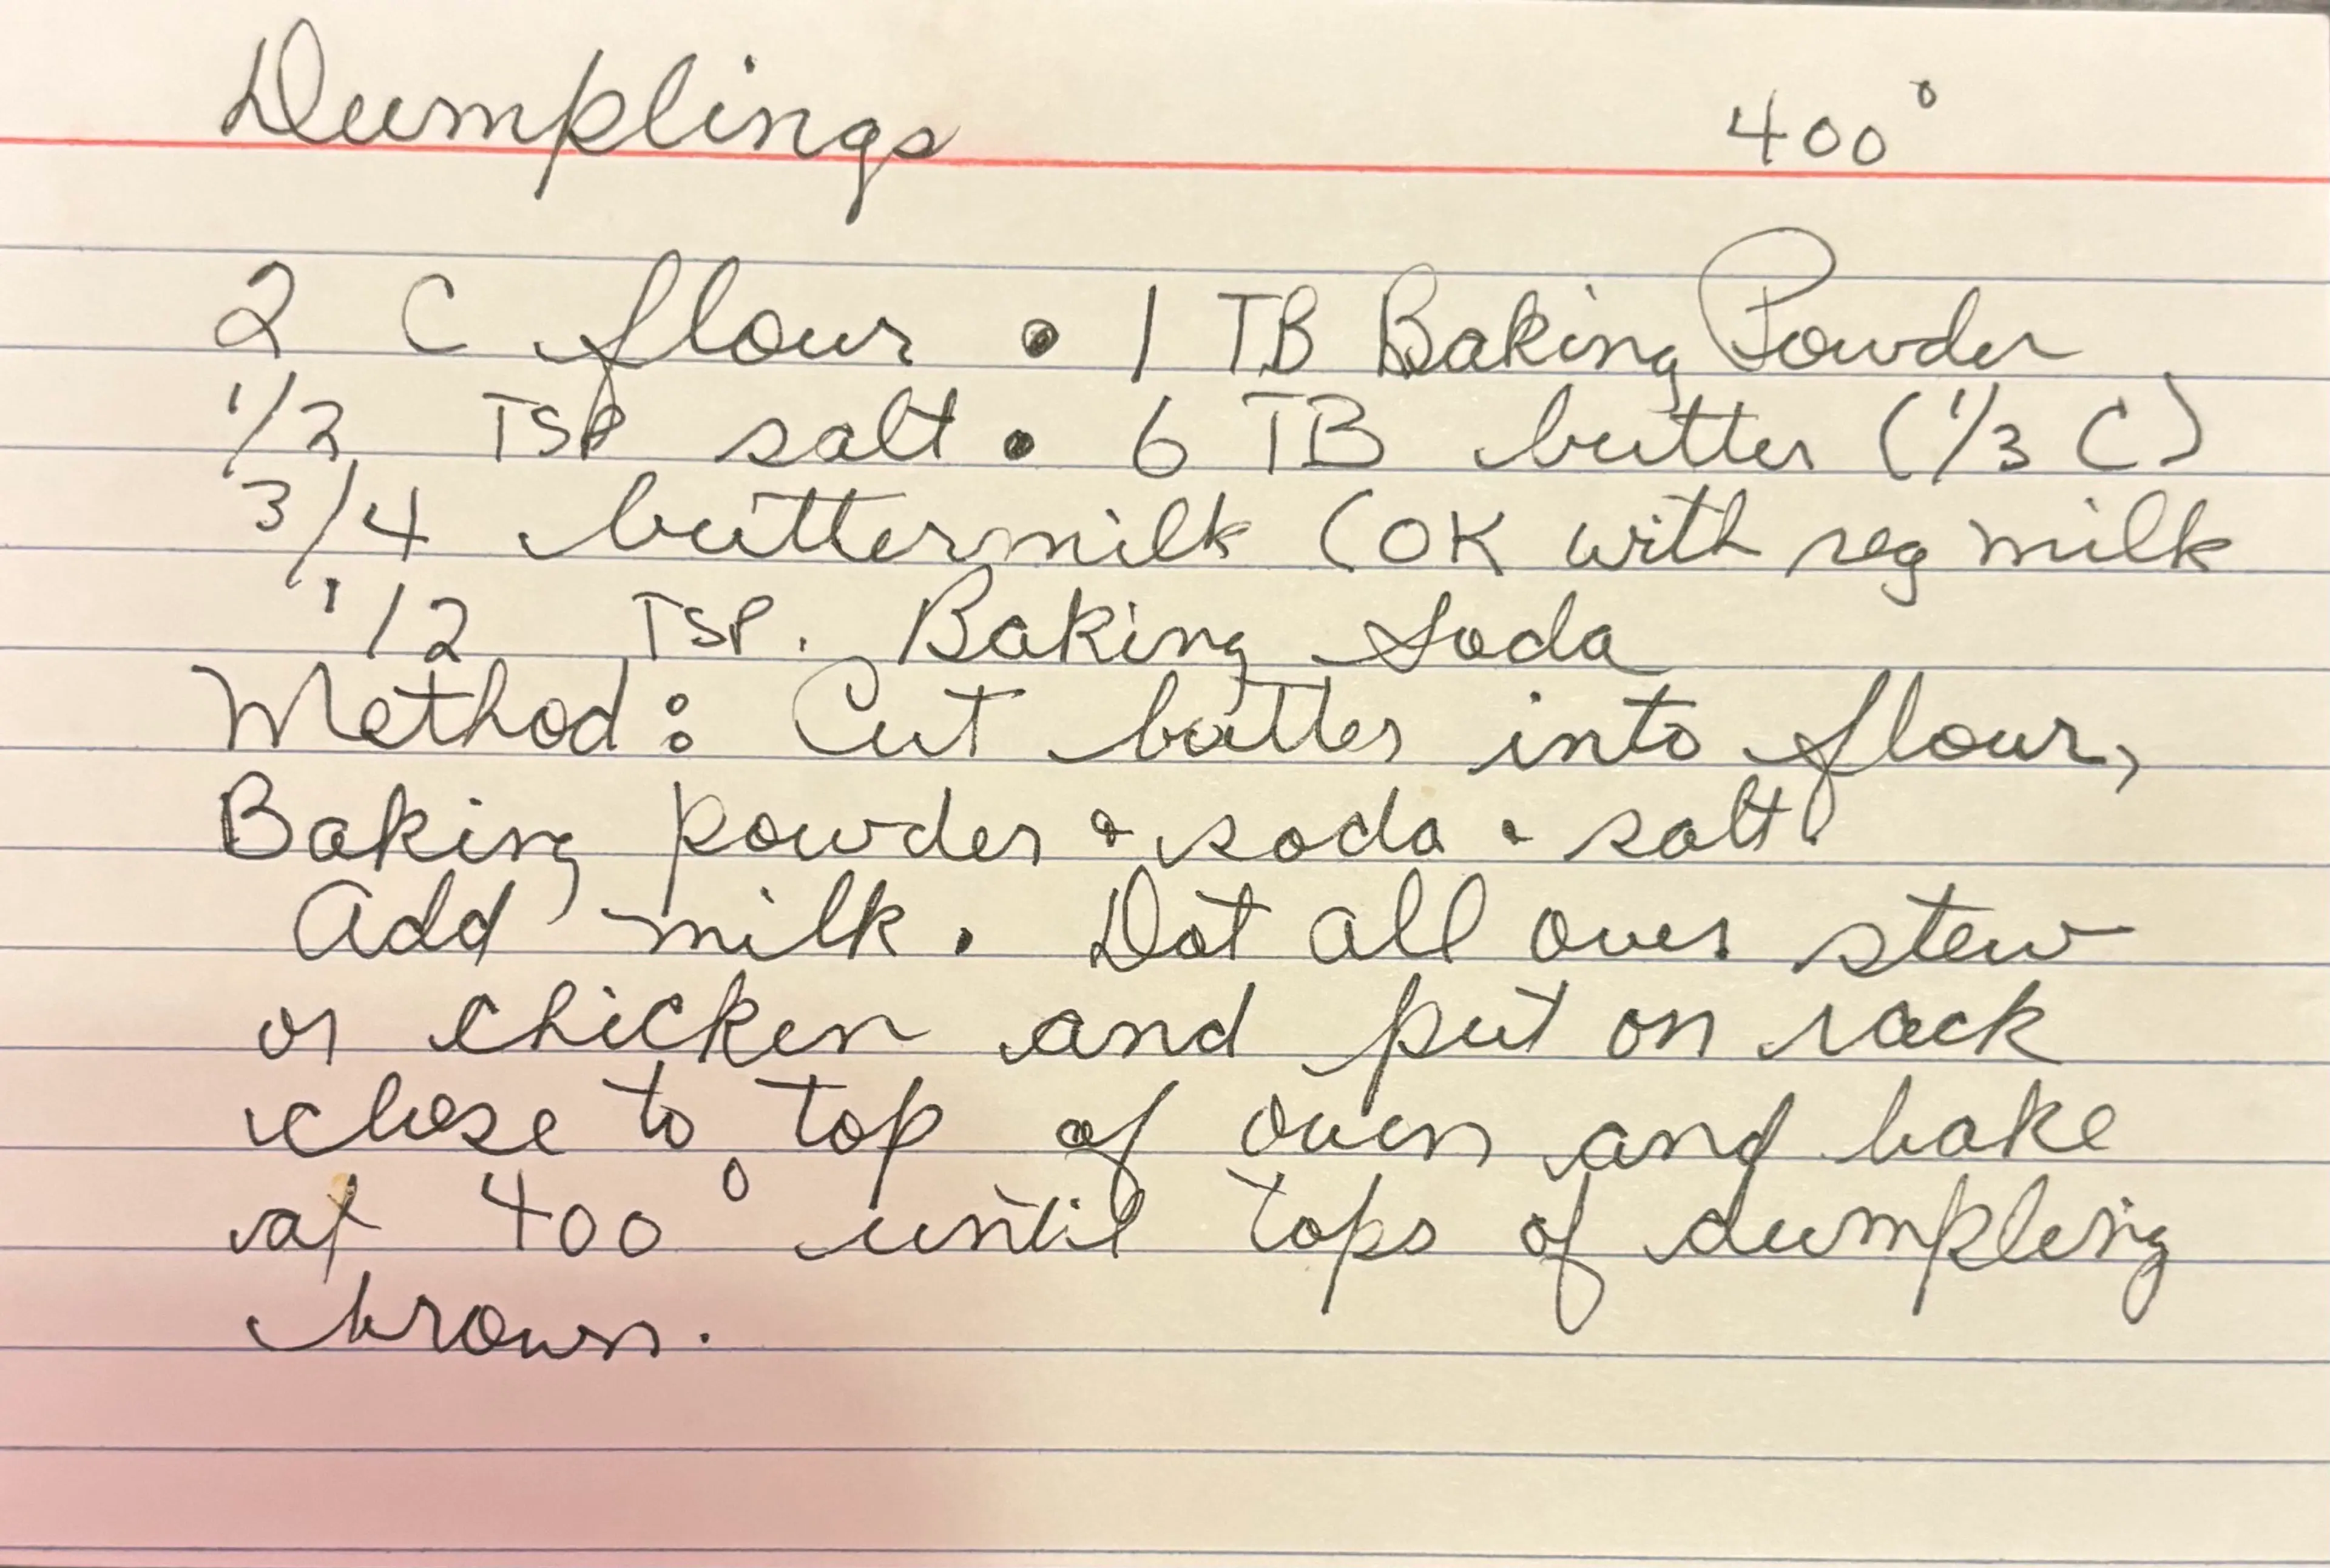 Dumplings 400°
2 C flour • 1 TB Baking Powder
1/2 TSP salt • 6 TB butter (1/3 C)
3/4 buttermilk (OK with reg milk
1/2 TSP. Baking Soda
Method: Cut butter into flour,
Baking powder & soda & salt.
Add milk. Dot all over stew
or chicken and put on rack
close to top of oven and bake
at 400° until tops of dumpling
brown.